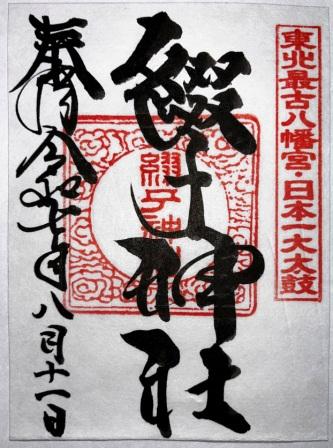 東北最古八幡宮・日本一大太鼓
綴子神社
綴子神社
奉拝 令和七年八月十一日